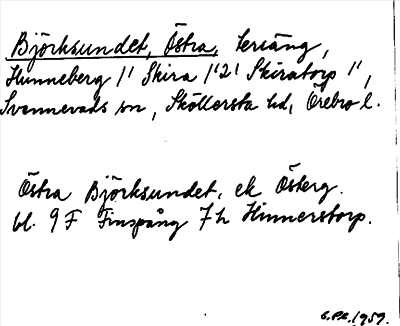 Björksundet, Östra, terräng,
Hunneberg 1' Skira 1'2' Skiratorp 1',
Svennevads sn, Sköllersta hd, Örebro l.
Östra Björksundet, ek Österg.
bl. 9 F Finspång 7 h Hinnerstorp.
1959.